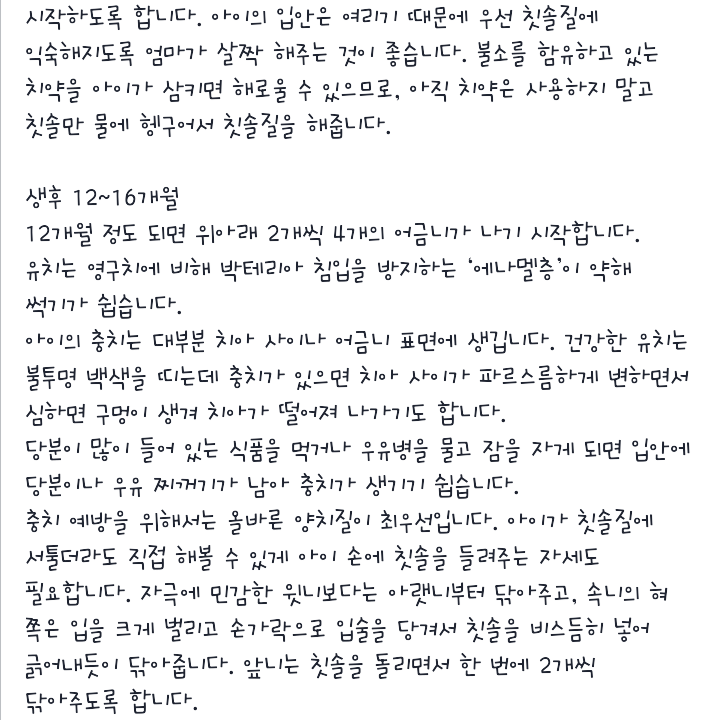 시작하도록 합니다. 아이의 입안은 여리기 때문에 우선 칫솔질에
익숙해지도록 엄마가 살짝 해주는 것이 좋습니다. 불소를 함유하고 있는
치약을 아이가 삼키면 해로울 수 있으므로, 아직 치약은 사용하지 말고
칫솔만 물에 헹구어서 칫솔질을 해줍니다.
생후 12~16개월
12개월 정도 되면 위아래 2개씩 4개의 어금니가 나기 시작합니다.
유치는 영구치에 비해 박테리아 침입을 방지하는 '에나멜층'이 약해
썩기가 쉽습니다.
아이의 충치는 대부분 치아 사이나 어금니 표면에 생깁니다. 건강한 유치는
불투명 백색을 띠는데 충치가 있으면 치아 사이가 파르스름하게 변하면서
심하면 구멍이 생겨 치아가 떨어져 나가기도 합니다.
당분이 많이 들어 있는 식품을 먹거나 우유병을 물고 잠을 자게 되면 입안에
당분이나 우유 찌꺼기가 남아 충치가 생기기 쉽습니다.
충치 예방을 위해서는 올바른 양치질이 최우선입니다. 아이가 칫솔질에
서툴더라도 직접 해볼 수 있게 아이 손에 칫솔을 들려주는 자세도
필요합니다. 자극에 민감한 윗니보다는 아랫니부터 닦아주고, 속니의 혀
쪽은 입을 크게 벌리고 손가락으로 입술을 당겨서 칫솔을 비스듬히 넣어
긁어내듯이 닦아줍니다. 앞니는 칫솔을 돌리면서 한 번에 2개씩
닦아주도록 합니다.